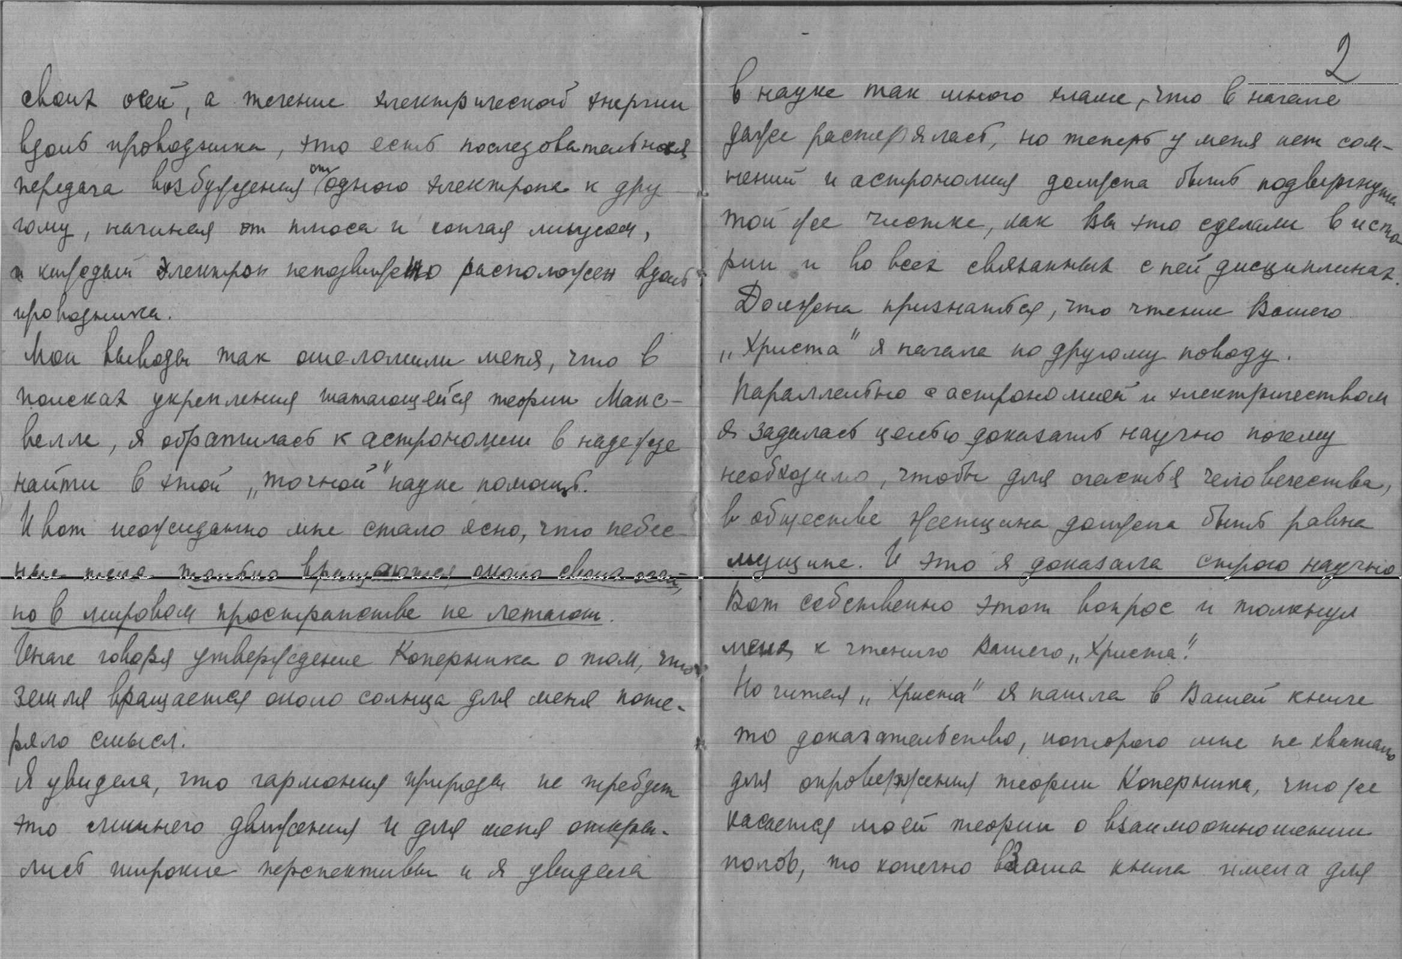 своих осей, а течение электрической энергии
вдоль проводника, это есть последовательная
передача возбуждения от одного электрона к дру
гому, начиная от плюса и кончая минусом,
и каждый электрон неподвижно расположен вдоль
проводника.
Мои выводы так ошеломили меня, что в
поисках укрепления шатающейся теории Макс-
велла, я обратилась к астрономии в надежде
найти в этой „точной" науке помощь.
И вот неожиданно мне стало ясно, что небес-
ные тела только вращаются около своих осей,
но в мировом пространстве не летают.
Иначе говоря утверждение Коперника о том, что
земля вращается около солнца для меня поте-
ряло смысл.
Я увидела, что гармония природы не требует
это лишнего движения и для меня откры-
лись широкие перспективы и я увидела
2
в науке так много хлама, что в начале
даже растерялась, но теперь у меня нет сом-
нений и астрономия должна быть подвергнута
той же чистке, как Вы это сделали в исто
рии и во всех связанных с ней дисциплинах.
Должна признаться, что чтение Вашего
„Христа" я начала по другому поводу.
Параллельно с астрономией и электричеством
я задалась целью доказать научно почему
необходимо, чтобы для счастья человечества,
в обществе женщина должна быть равна
мущине. И это я доказала строго научно
Вот собственно этот вопрос и толкнул
меня к чтению Вашего „Христа".
Но читая „Христа" я нашла в Вашей книге
то доказательство, которого мне не хватало
для опровержения теории Коперника, что же
касается моей теории о взаимоотношении
полов, то конечно Ваша книга имела для